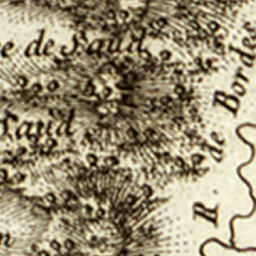 e de Saud
Saud
R. de Bordes
n